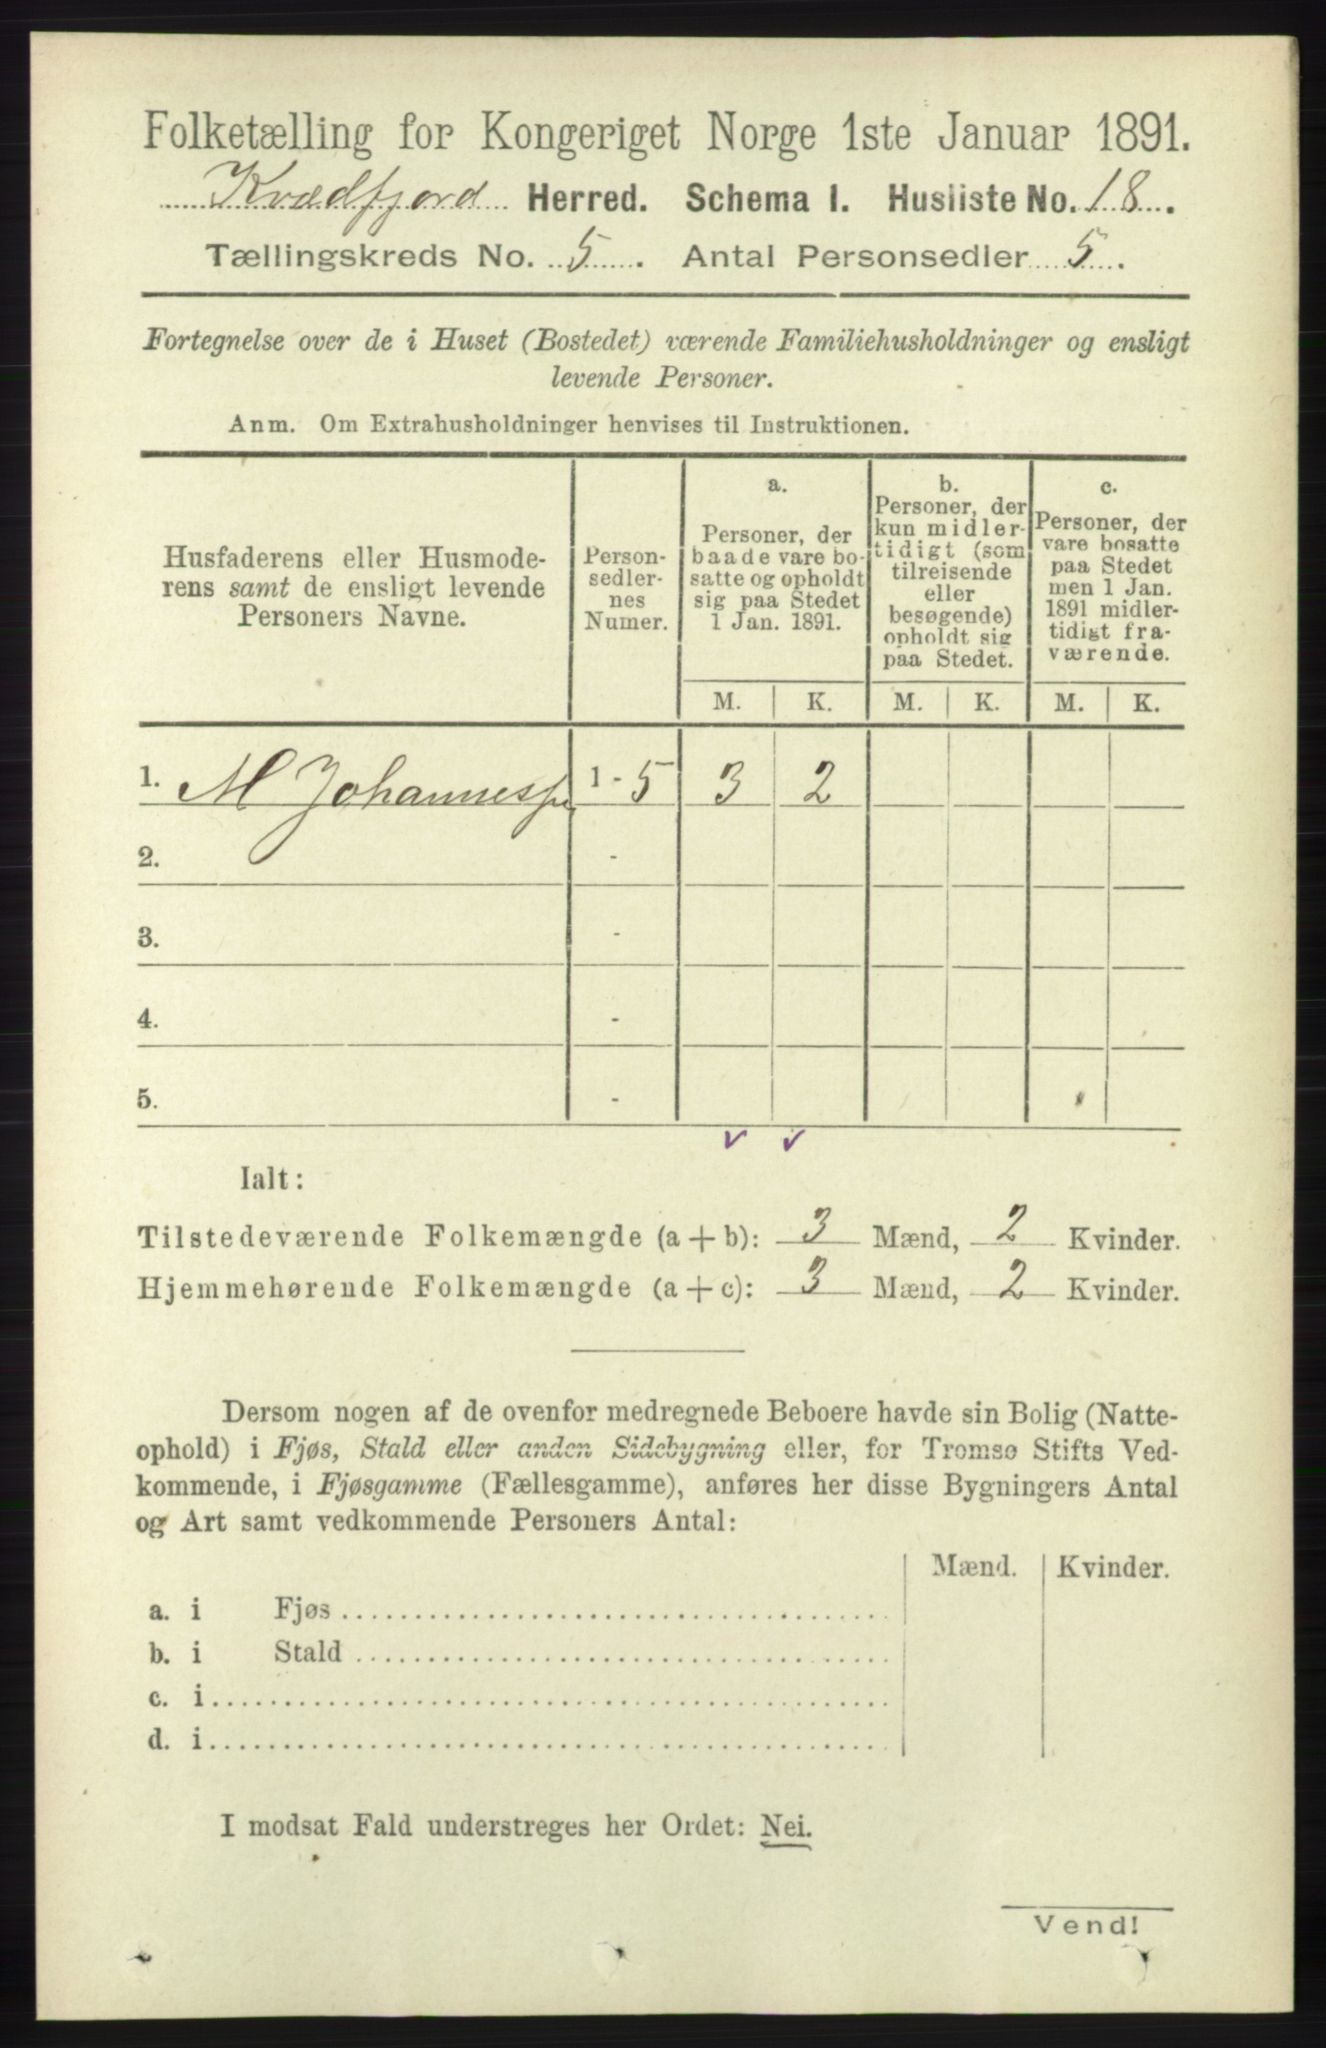 Folketælling for Kongeriget Norge 1ste Januar 1891.
Kvædfjord Herred. Schema I. Husliste No. 18.
Tællingskreds No. 5. Antal Personsedler 5.
Fortegnelse over de i Huset (Bostedet) værende Familiehusholdninger og ensligt
levende Personer.
Anm. Om Extrahusholdninger henvises til Instruktionen.
Husfaderens eller Husmode-
rens samt de ensligt levende
Personers Navne.
Person-
sedler-
nes
Numer.
a.
Personer, der
baade vare bo-
satte og opholdt
sig paa Stedet
1 Jan. 1891.
b.
Personer, der
kun midler-
tidigt (som
tilreisende
eller
besøgende)
opholdt sig
paa Stedet.
c.
Personer, der
vare bosatte
paa Stedet
men 1 Jan.
1891 midler-
tidigt fra-
værende.
M. K. M. K. M. K.
1. M Johannessen 1 - 5 3 2
2. -
3. -
4. -
5. -
Ialt:
Tilstedeværende Folkemængde (a + b): 3 Mænd, 2 Kvinder.
Hjemmehørende Folkemængde (a + c): 3 Mænd, 2 Kvinder.
Dersom nogen af de ovenfor medregnede Beboere havde sin Bolig (Natte-
ophold) i Fjøs, Stald eller anden Sidebygning eller, for Tromsø Stifts Ved-
kommende, i Fjøsgamme (Fællesgamme), anføres her disse Bygningers Antal
og Art samt vedkommende Personers Antal:
Mænd. Kvinder.
a. i Fjøs
b. i Stald
c. i
d. i
I modsat Fald understreges her Ordet: Nei.
Vend!